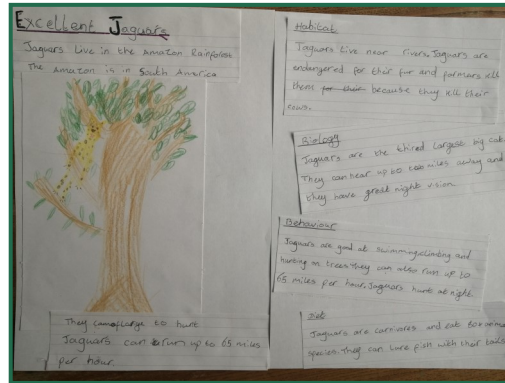 Excellent Jaguars
Jaguars Live in the Amazon Rainforest
The Amazon is in South America
They camoflarge to hunt
Jaguars can run up to 65 miles
per hour.
Habitat
Jaguars live near rivers. Jaguars are
endangered for their fur and farmars kill
them for their because they kill their
cows.
Biology
Jaguars are the thired largest big cat
They can hear up to miles away and
they have great night vision
Behaviour
Jaguars are good at swimming, climbing and
hunting on trees. They can also run up to
65 miles per hour. Jaguars hunt at night.
Diet
Jaguars are carnivores and eat 80
species. They can lure fish with their tails